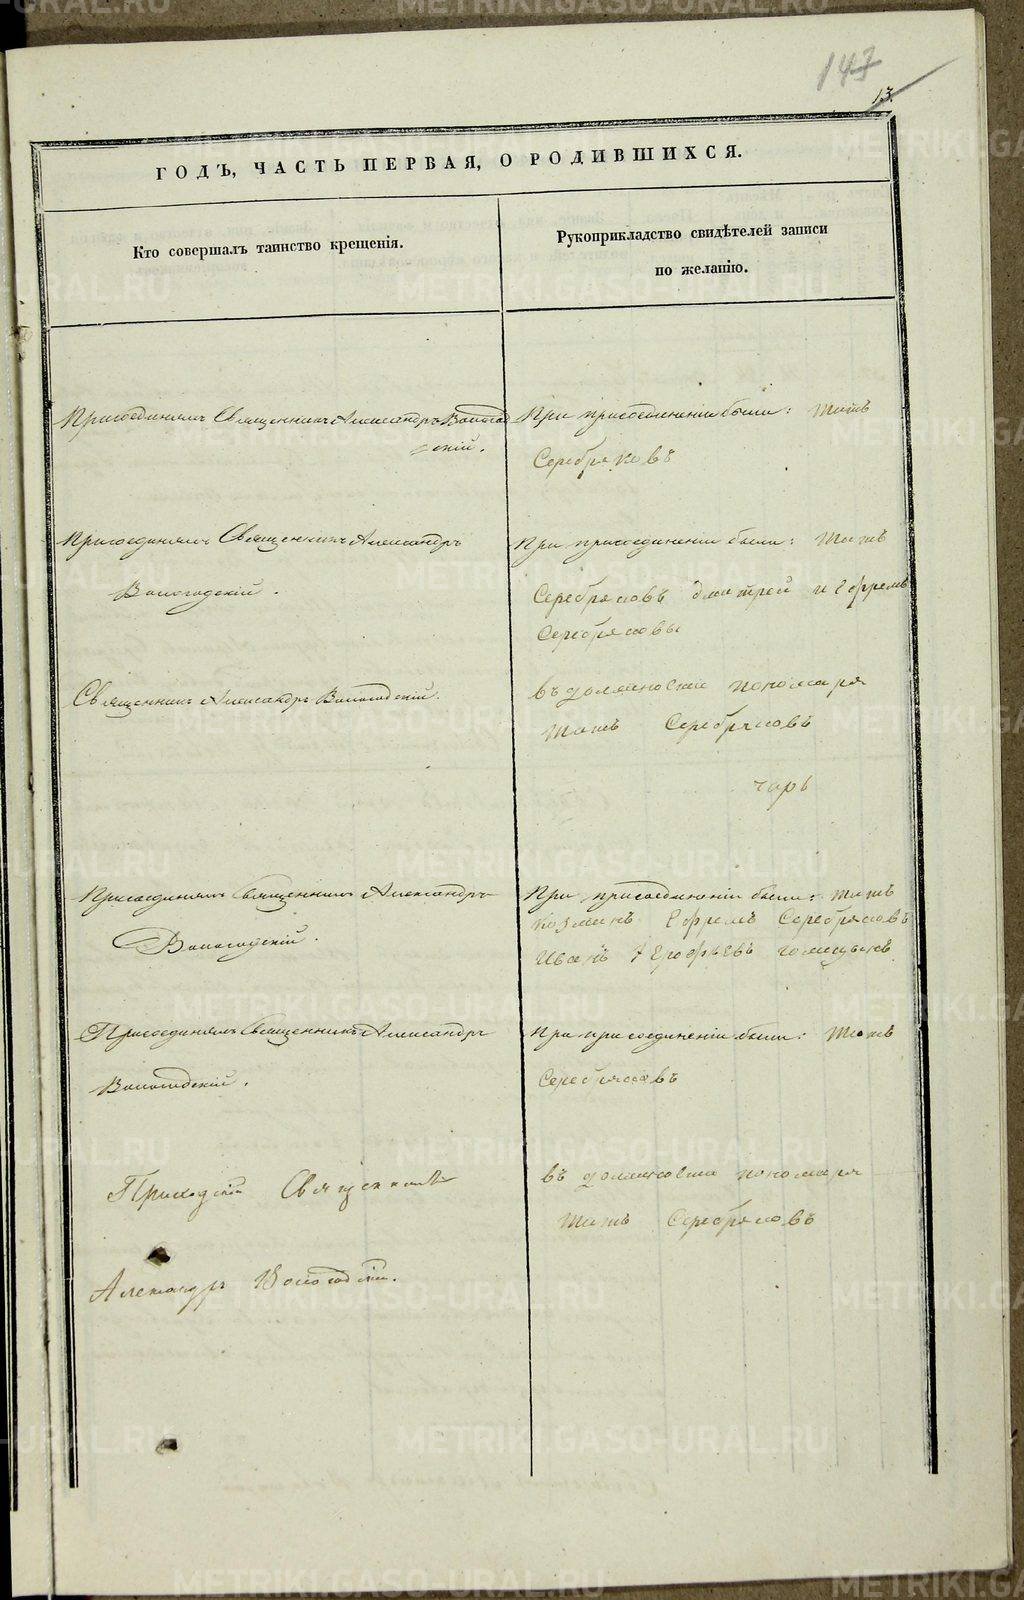 147
13.
ГОДЪ, ЧАСТЬ ПЕРВАЯ, О РОДИВШИХСЯ.
Кто совершалъ таинство крещенія.
Рукоприкладство свидѣтелей записи
по желанію.
Присоединялъ Священникъ Александръ Вологод
скій.
При присоединеніи были:
Серебряковъ
Присоединялъ Священникъ Александръ
Вологодскій.
При присоединеніи были:
Серебряковъ Дмитрей и Ефремъ
Серебряковы
Священникъ Александръ Вологодскій.
въ должности пономаря
Серебряковъ
Присоединялъ Священникъ Александръ
Вологодскій.
При присоединеніи были:
Козминъ Ефремъ Серебряковъ
Иванъ Ерофѣевъ
Присоединялъ Священникъ Александръ
Вологодскій.
При присоединеніи были:
Серебряковъ
Приходскій Священникъ
Александръ Вологодскій.
въ должности пономаря
Серебряковъ
METRIKI.GASO-URAL.RU